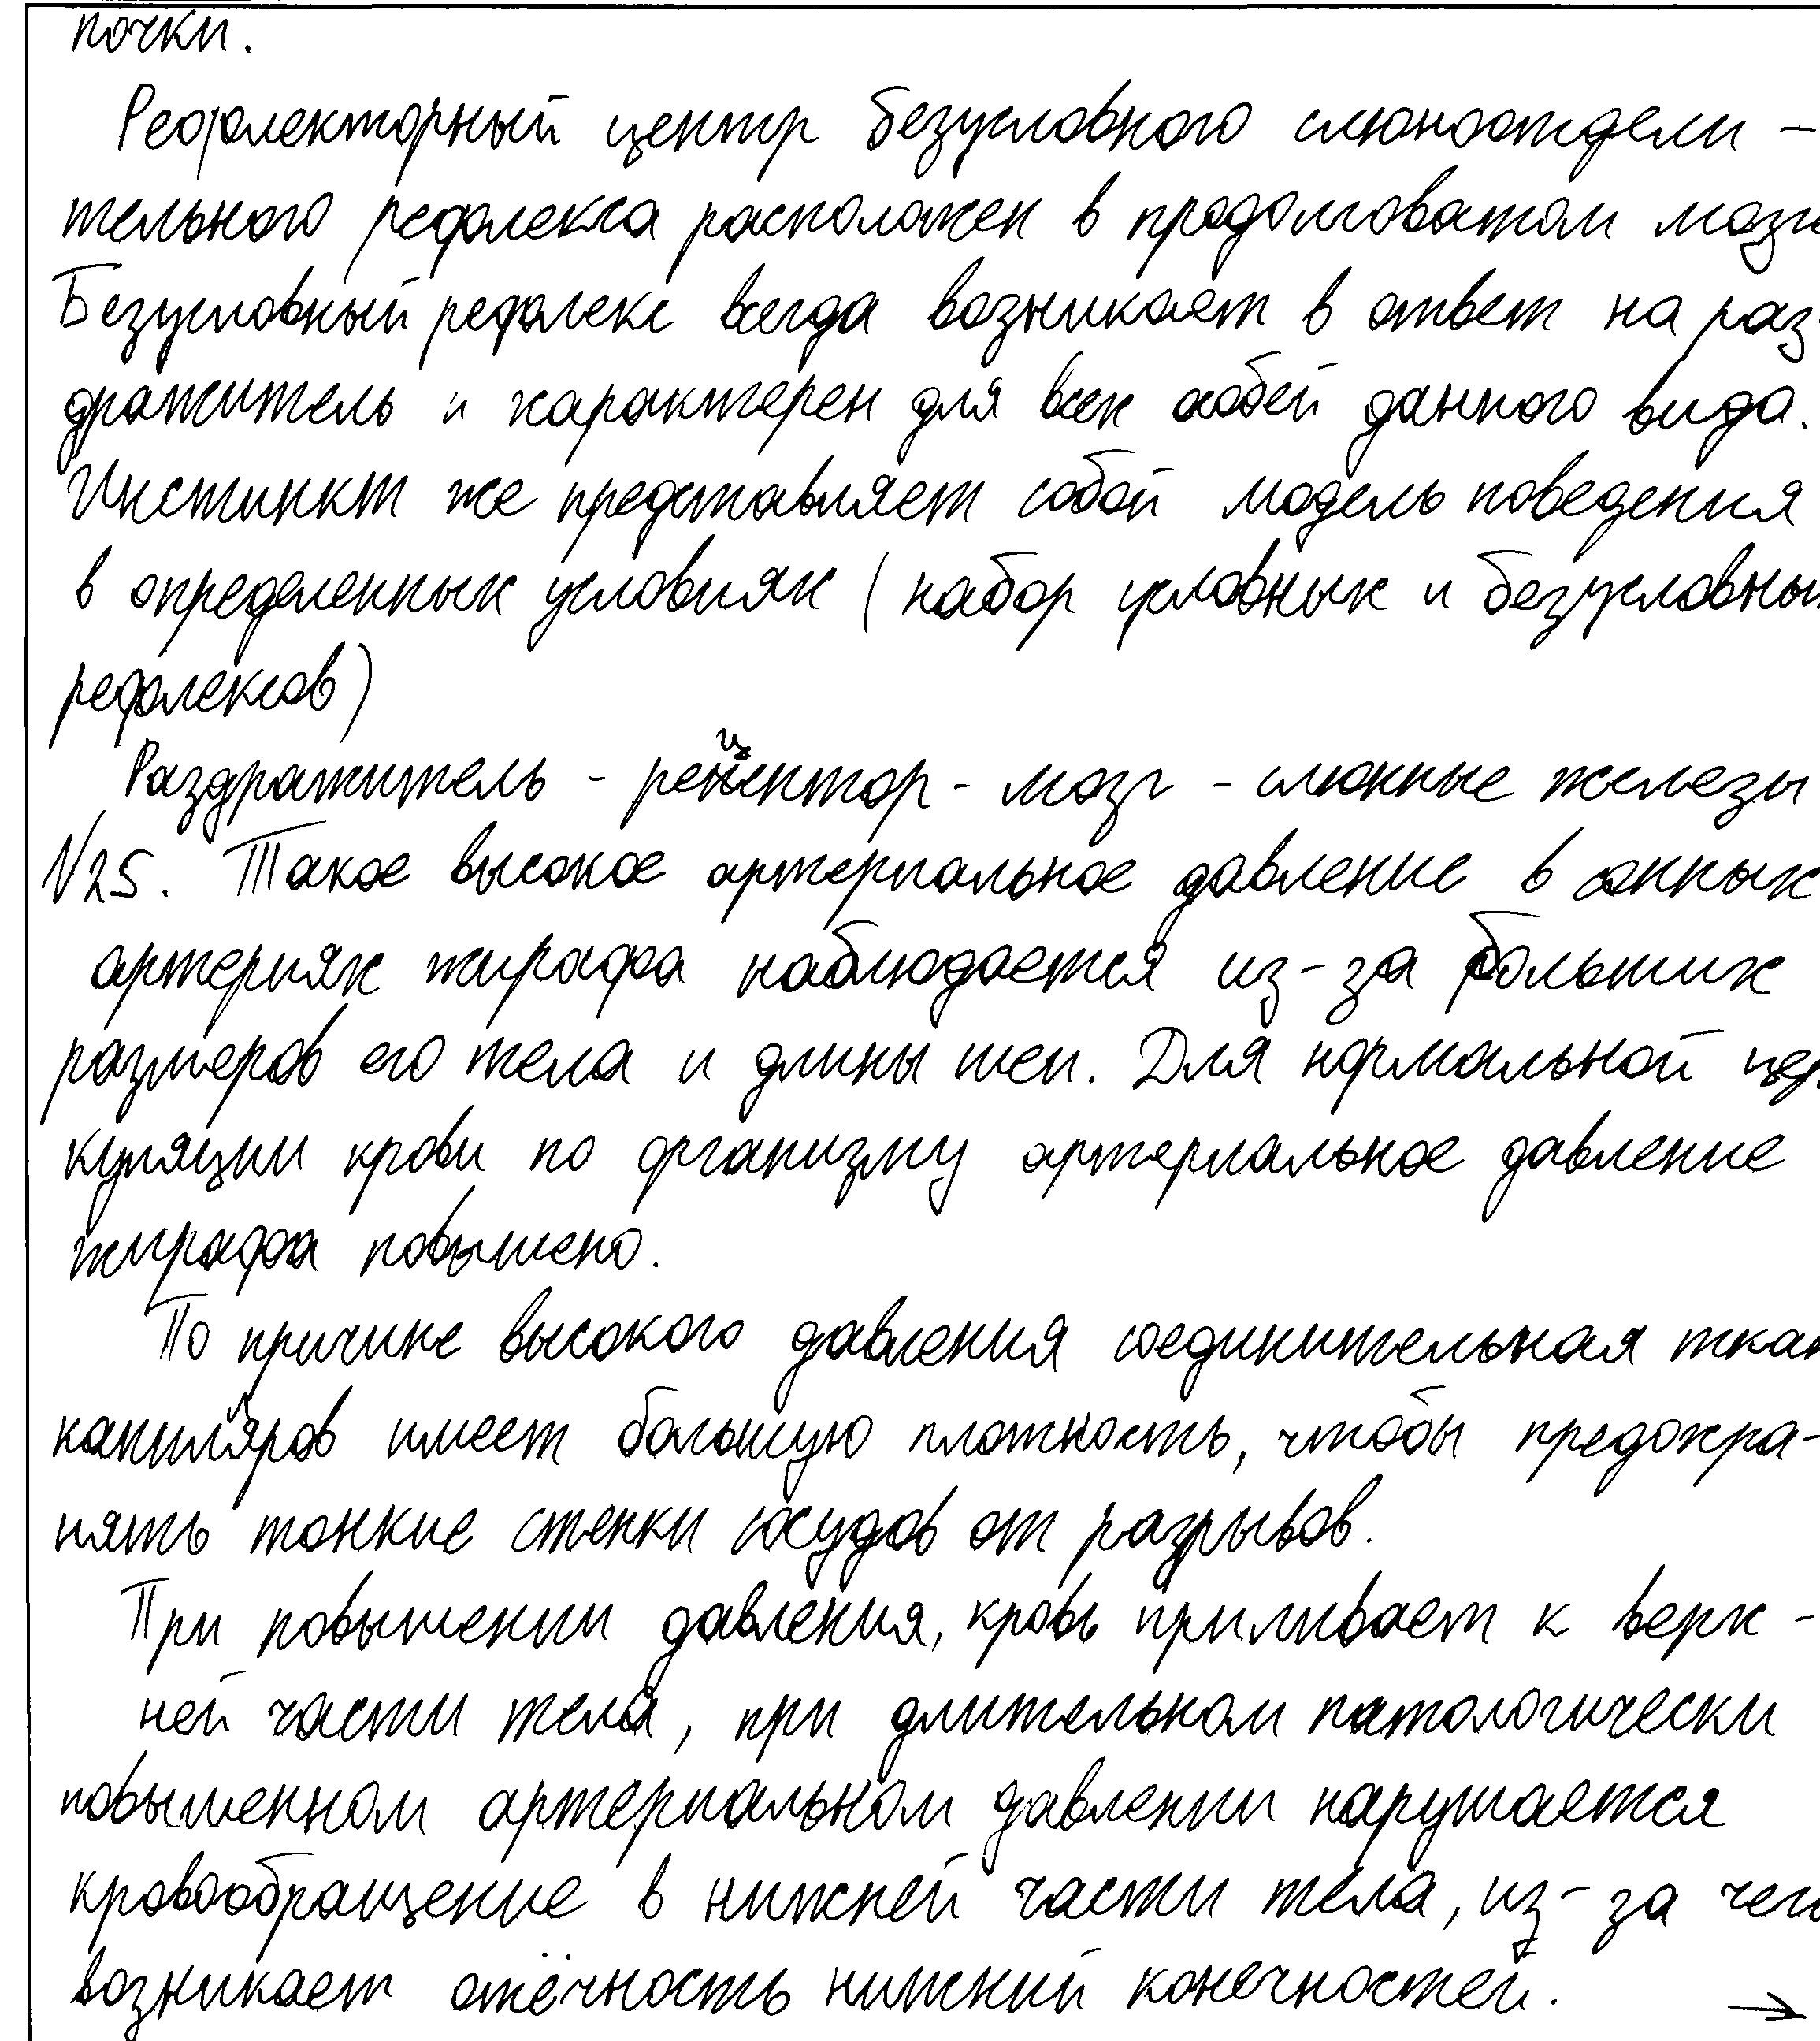 почки.
Рефлекторный центр безусловного слюноотдели-
тельного рефлекса расположен в продолговатом мозге
Безусловный рефлекс всегда возникает в ответ на раз-
дражитель и характерен для всех особей данного вида.
Инстинкт же представляет собой модель поведения
в определенных условиях (набор условных и безусловных
рефлексов)
Раздражитель - рецептор - мозг - слюнные железы
№25. Такое высокое артериальное давление в сонных
артериях жирафа наблюдается из-за больших
размеров его тела и длины шеи. Для нормальной цер
куляции крови по организму артериальное давление
жирафа повышено.
По причине высокого давления соединительная ткан
капилляров имеет большую плотность, чтобы предохра-
нять тонкие стенки сосудов от разрывов.
При повышении давления, кровь приливает к верх-
ней части тела, при длительном патологически
повышенном артериальном давлении нарушается
кровообращение в нижней части тела, из-за чего
возникает отёчность нижний конечностей. →